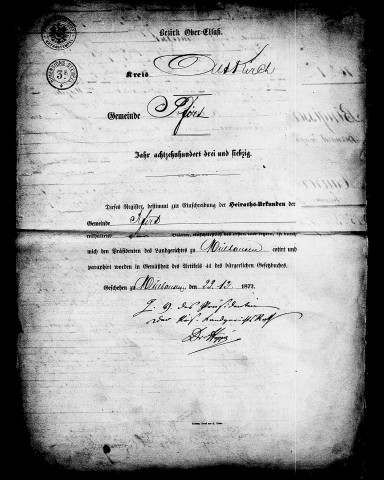 Bezirk Ober-Elsaß.
Kreis Altkirch
Gemeinde Pfirt
Jahr achtzehnhundert drei und siebzig.
Dieses Register, bestimmt zur Einschreibung der Heiraths-Urkunden der
Gemeinde Pfirt
enthaltend Blätter, einschließlich des ersten und letzten, ist durch
mich den Präsidenten des Landgerichtes zu Mülhausen cotirt und
paraphirt worden in Gemäßheit des Artikels 41 des bürgerlichen Gesetzbuches.
Geschehen zu Mülhausen, den 23. 12. 1872.
des Präsidenten
Der Kais. Landgerichts